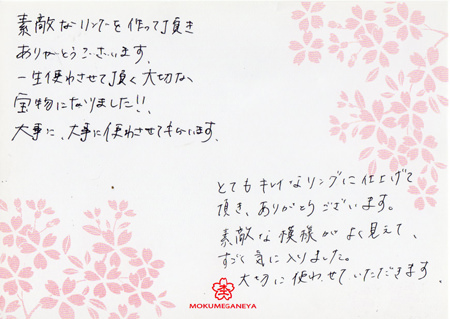 素敵なリングを作って頂き
ありがとうございます.
一生使わせて頂く大切な、
宝物になりました!!
大事に、大事に使わせてもらいます.
とてもキレイなリングに仕上げて
頂き、ありがとうございます。
素敵な模様がよく見えて、
すごく気に入りました。
大切に使わせていただきます.
MOKUMEGANEYA